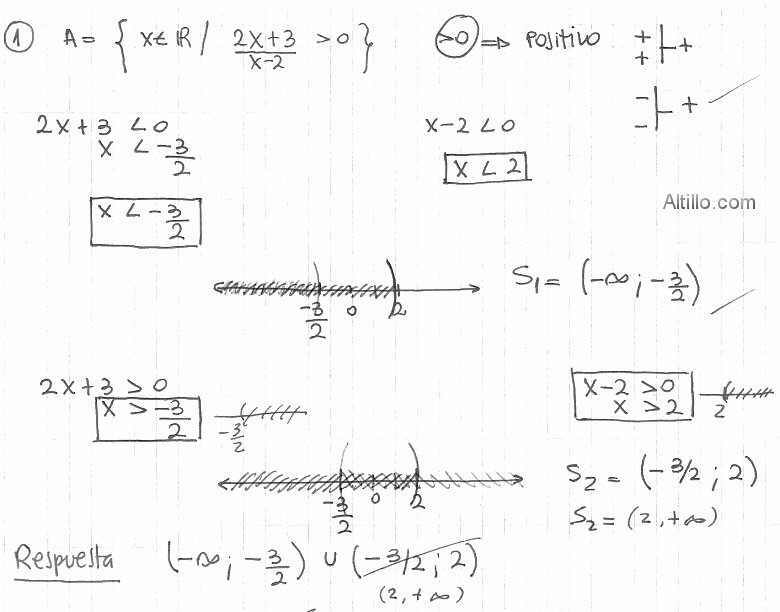 ① A = { x∈ℝ / (2x+3)/(x-2) > 0 }
>0 ⇒ Positivo + + | +
- - | +
2x+3 < 0
x < -3/2
x < -3/2
x-2 < 0
x < 2
Altillo.com
-3/2 0 2
S₁ = (-∞ ; -3/2)
2x+3 > 0
x > -3/2
-3/2
x-2 > 0
x > 2
2
-3/2 0 2
S₂ = (-3/2 ; 2)
S₂ = (2, +∞)
Respuesta (-∞ ; -3/2) ∪ (-3/2 ; 2)
(2, +∞)